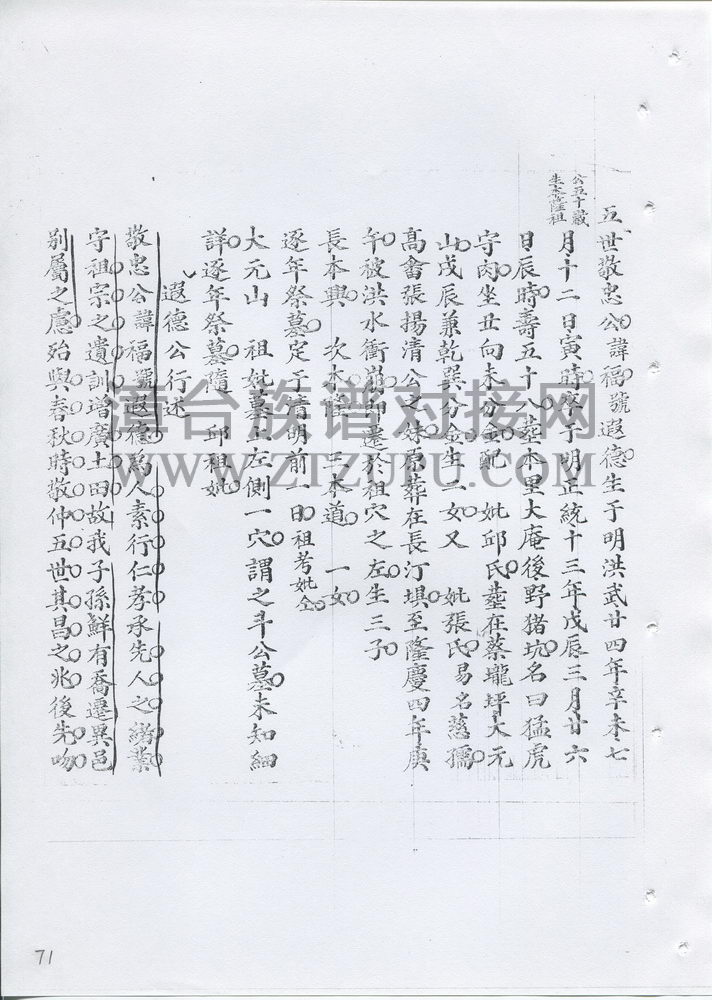 五世敬忠公諱福號遐德生于明洪武廿四年辛未七
公五十歲
生本隆祖
月十二日寅時卒于明正統十三年戊辰三月廿六
日辰時壽五十八葬本里大庵後野猪坑名曰猛虎
守肉坐丑向未分金配 妣邱氏葬在蔡壠坪大元
山戊辰兼乾巽分金生二女又 妣張氏易名慈孺
高會張揚清公之妹原葬在長汀垻至隆慶四年庚
午被洪水衝崩即遷於祖穴之左生三子
長本興 次本隆 三本道 一女
逐年祭墓定于清明前一日祖考妣仝
大元山 祖妣墓上左側一穴謂之斗公墓未知細
詳逐年祭墓 邱祖妣
遐德公行述
敬忠公諱福號遐德為人素行仁孝承先人之緒業
守祖宗之遺訓增廣土田故我子孫鮮有喬遷異邑
別屬之慮殆與春秋時敬仲五世其昌之兆後先吻
漳台族谱对接网
WWW.ZTZUPU.COM
71